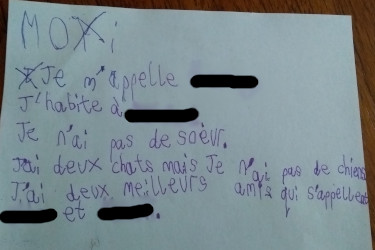 MOXi
Je m'appelle
J'habite à
Je n'ai pas de soèur.
J'ai deux chats mais Je n'ai pas de chiens
J'ai deux meilleurs amis qui s'appellent
et .